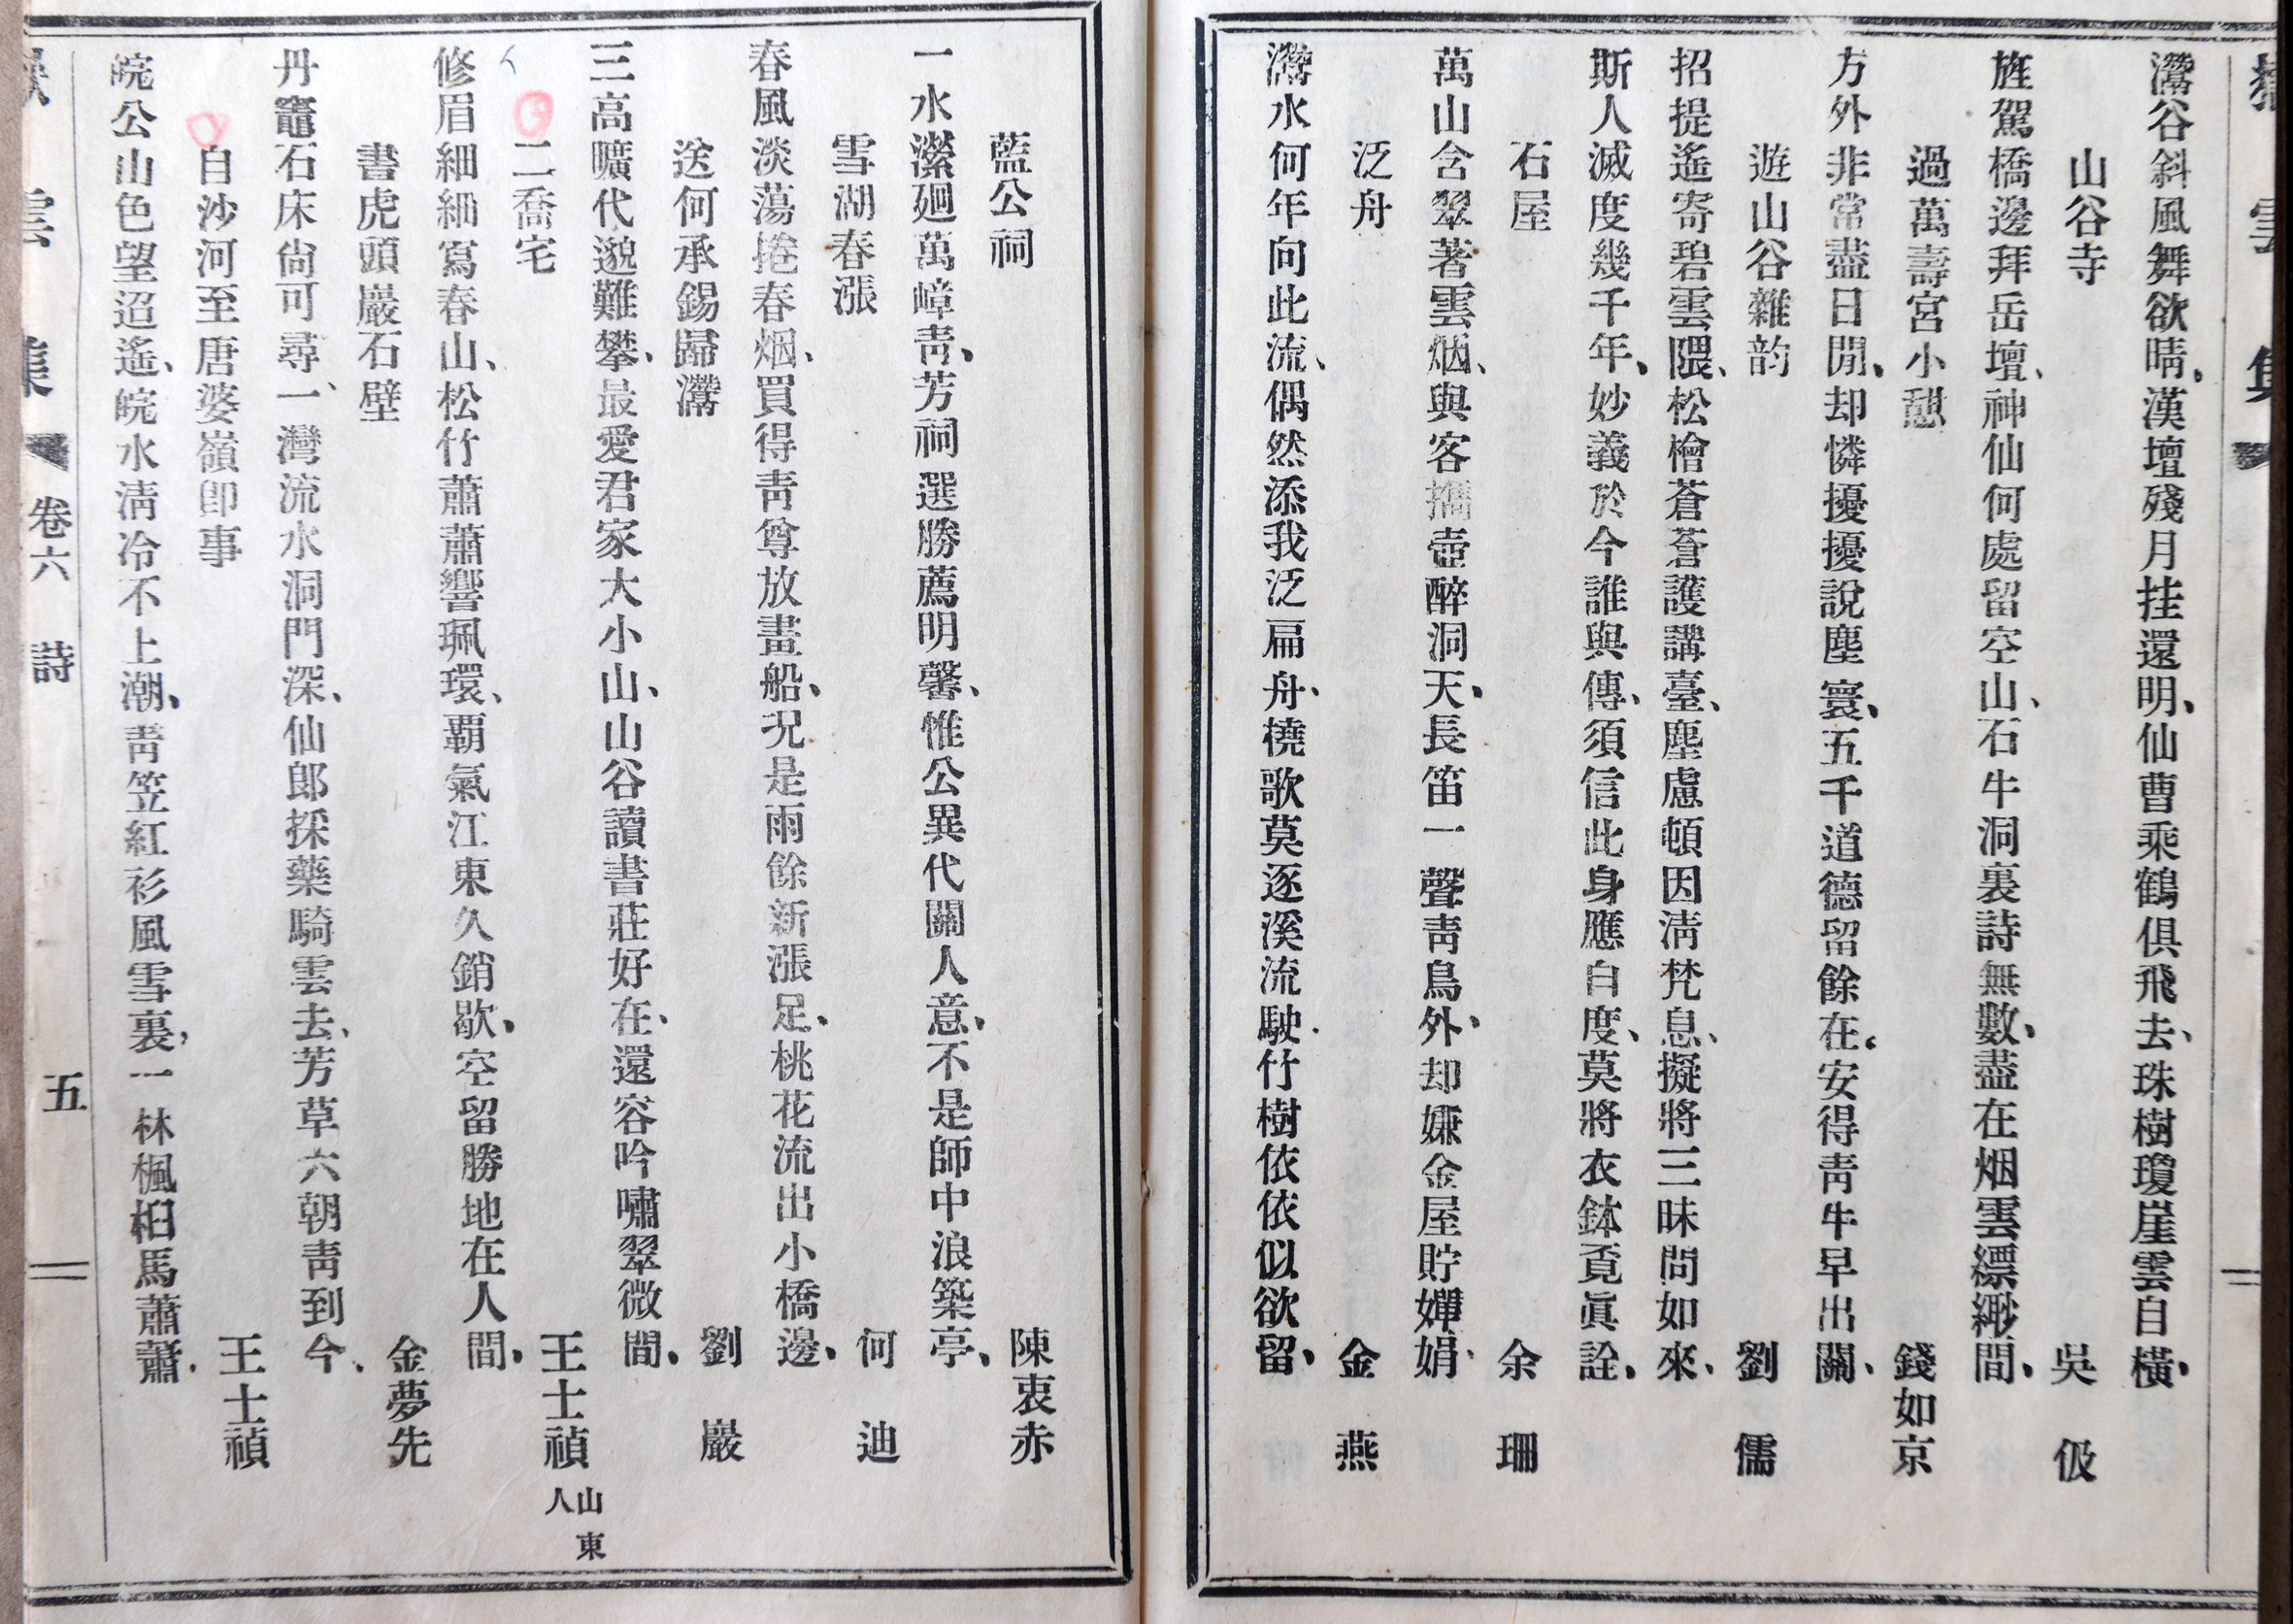 灊谷斜風舞欲晴、漢壇殘月挂還明、仙曹乘鶴俱飛去、珠樹瓊崖雲自橫、
山谷寺 吳伋
旌駕橋邊拜岳壇、神仙何處留空山、石牛洞裏詩無數、盡在烟雲縹緲間、
過萬壽宮小憩 錢如京
方外非常盡日閒、却憐擾擾說塵寰、五千道德留餘在、安得靑牛早出關、
遊山谷雜韵 劉儒
招提遙寄碧雲隈、松檜蒼蒼護講臺、塵慮頓因淸梵息、擬將三昧問如來、
斯人滅度幾千年、妙義於今誰與傳、須信此身應自度、莫將衣鉢覔眞詮、
石屋 余珊
萬山含翠著雲烟、與客攜壺醉洞天、長笛一聲靑鳥外、却嫌金屋貯嬋娟、
泛舟 金燕
灊水何年向此流、偶然添我泛扁舟、橈歌莫逐溪流駛、竹樹依依似欲留、
藍公祠 陳衷赤
一水瀠廻萬嶂靑、芳祠選勝薦明馨、惟公異代關人意、不是師中浪築亭、
雪湖春漲 何迪
春風淡蕩捲春烟、買得靑尊放畫船、況是雨餘新漲足、桃花流出小橋邊、
送何承錫歸灊 劉巖
三高曠代邈難攀、最愛君家大小山、山谷讀書莊好在、還容吟嘯翠微間、
二喬宅 王士禎 山東人
修眉細細寫春山、松竹蕭蕭響珮環、覇氣江東久銷歇、空留勝地在人間、
書虎頭巖石壁 金夢先
丹竈石床尙可尋、一灣流水洞門深、仙郎採藥騎雲去、芳草六朝靑到今、
自沙河至唐婆嶺卽事 王士禎
皖公山色望迢遙、皖水淸冷不上潮、靑笠紅衫風雪裏、一林楓桕馬蕭蕭、
雲集 卷六 詩 五